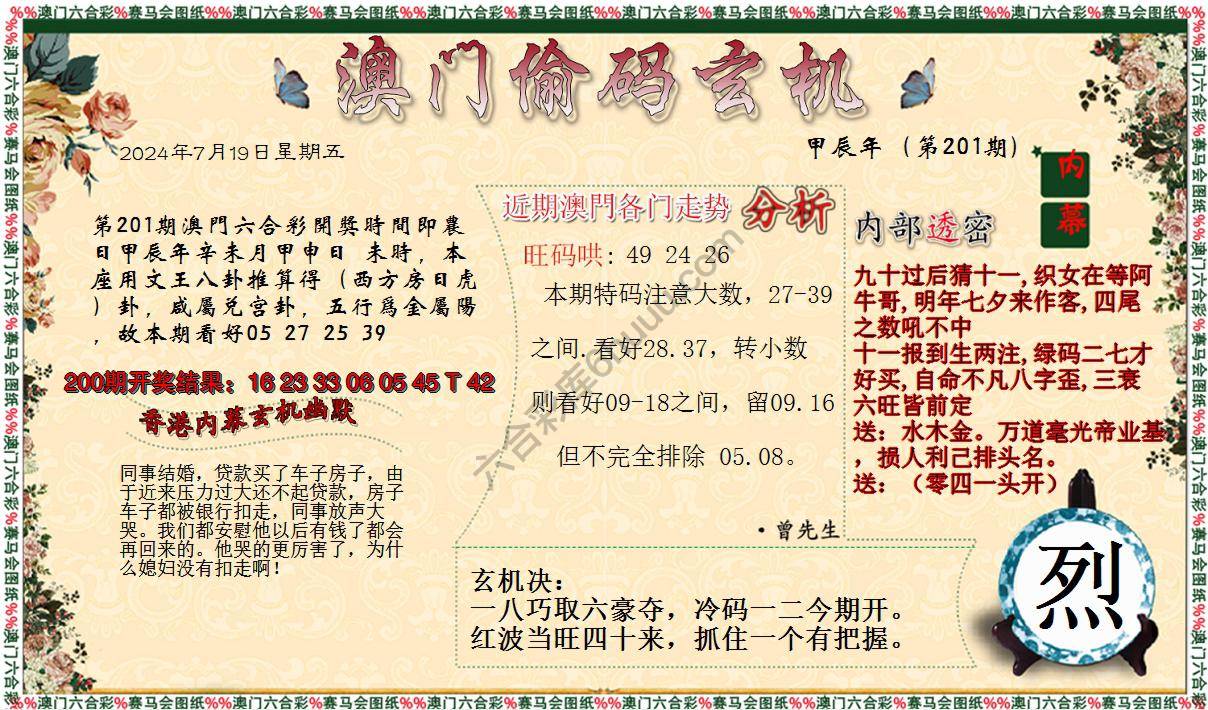 %%澳门六合彩%赛马会图纸%%澳门六合彩%赛马会图纸%%澳门六合彩%赛马会图纸%%澳门六合彩%赛马会图纸%%澳门六合彩%赛马会图纸%%澳门六合彩%赛马会图纸%%
澳门偷码玄机
2024年7月19日星期五
甲辰年（第201期）
内
幕
第201期澳門六合彩開獎時間即農
日甲辰年辛未月甲申日 未時，本
座用文王八卦推算得（西方房日虎
）卦，咸屬兑宫卦，五行爲金屬陽
，故本期看好05 27 25 39
200期开奖结果：16 23 33 06 05 45 T 42
香港内幕玄机幽默
同事结婚，贷款买了车子房子，由
于近来压力过大还不起贷款，房子
车子都被银行扣走，同事放声大
哭。我们都安慰他以后有钱了都会
再回来的。他哭的更厉害了，为什
么媳妇没有扣走啊！
近期澳門各门走势 分析
旺码哄: 49 24 26
本期特码注意大数，27-39
之间.看好28.37，转小数
则看好09-18之间，留09.16
但不完全排除 05.08。
·曾先生
内部透密
九十过后猜十一,织女在等阿
牛哥,明年七夕来作客,四尾
之数吼不中
十一报到生两注,绿码二七才
好买,自命不凡八字歪,三衰
六旺皆前定
送：水木金。万道毫光帝业基
，损人利己排头名。
送：（零四一头开）
玄机决：
一八巧取六豪夺，冷码一二今期开。
红波当旺四十来，抓住一个有把握。
烈
%%澳门六合彩%赛马会图纸%%澳门六合彩%赛马会图纸%%澳门六合彩%赛马会图纸%%澳门六合彩%赛马会图纸%%澳门六合彩%赛马会图纸%%澳门六合彩%赛马会图纸%%